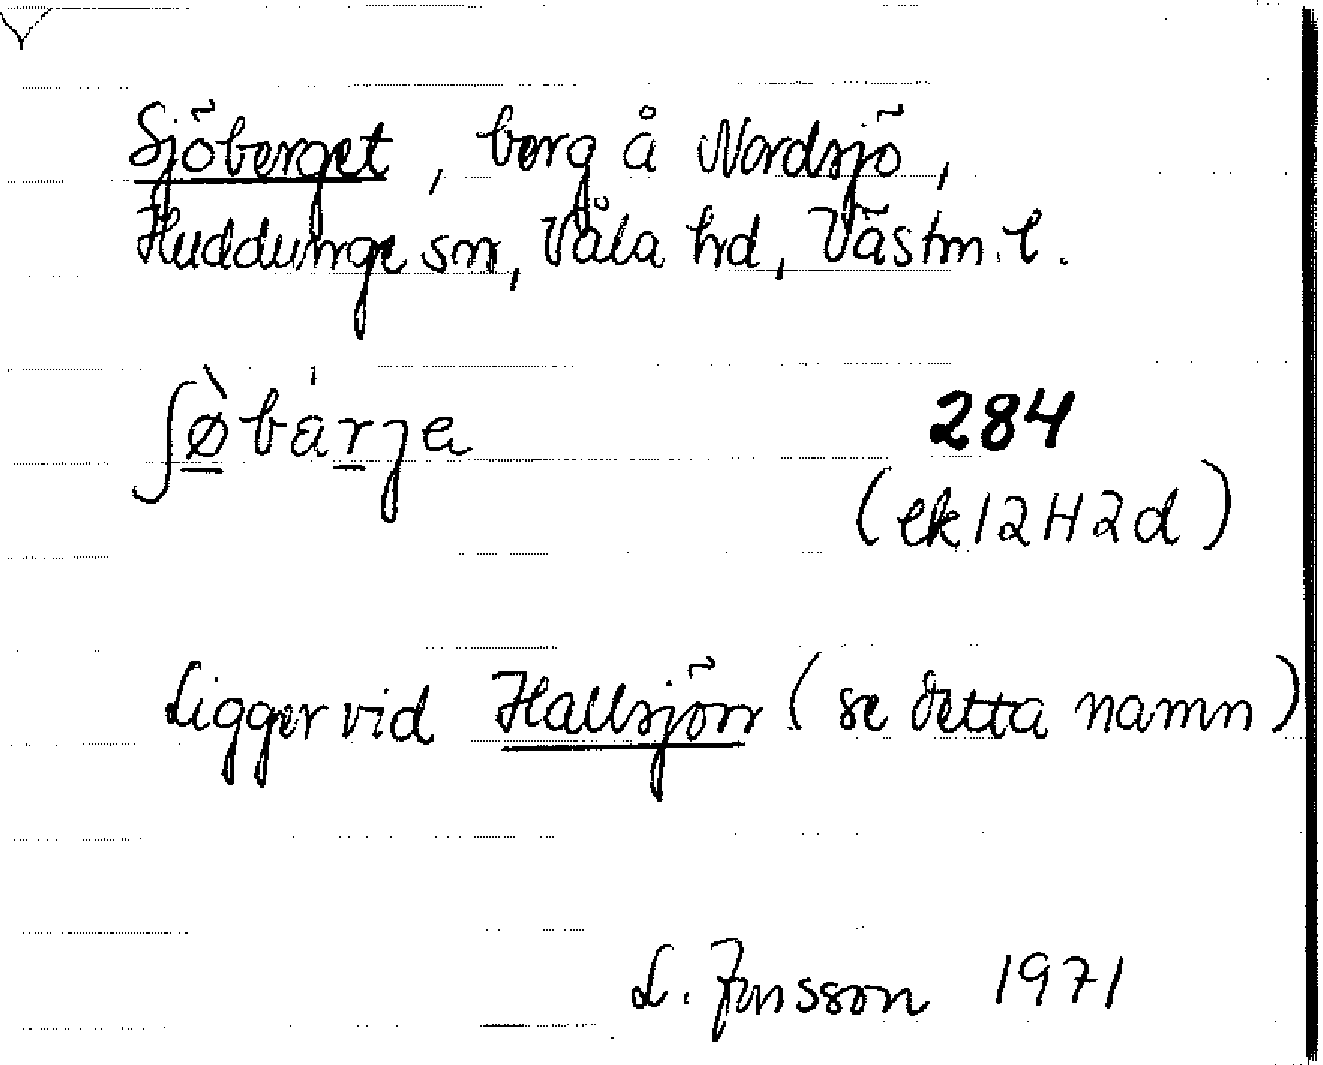 Sjöberget, berg å Nordsjö,
Huddunge sn, Våla hd, Västm. l.
ʃø̀bárja
284
(ek 12H2d)
Ligger vid Hallsjön (se detta namn)
L. Jonsson 1971